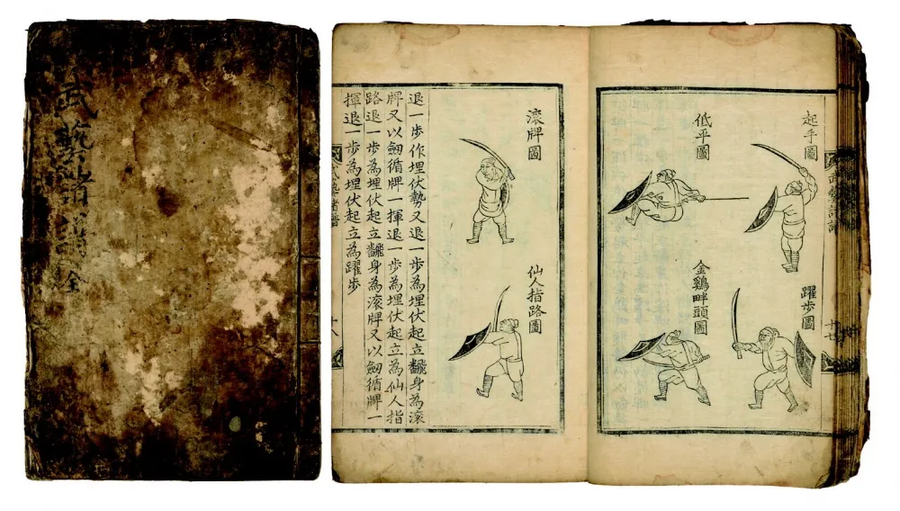 武藝諸譜 全
起手圖
躍步圖
低平圖
金鷄畔頭圖
滚牌圖
仙人指路圖
退一步作埋伏勢又退一步為埋伏起立飜身為滚
牌又以劒循牌一揮退一步為埋伏起立為仙人指
路退一步為埋伏起立飜身為滚牌又以劒循牌一
揮退一步為埋伏起立為躍步
武藝諸譜